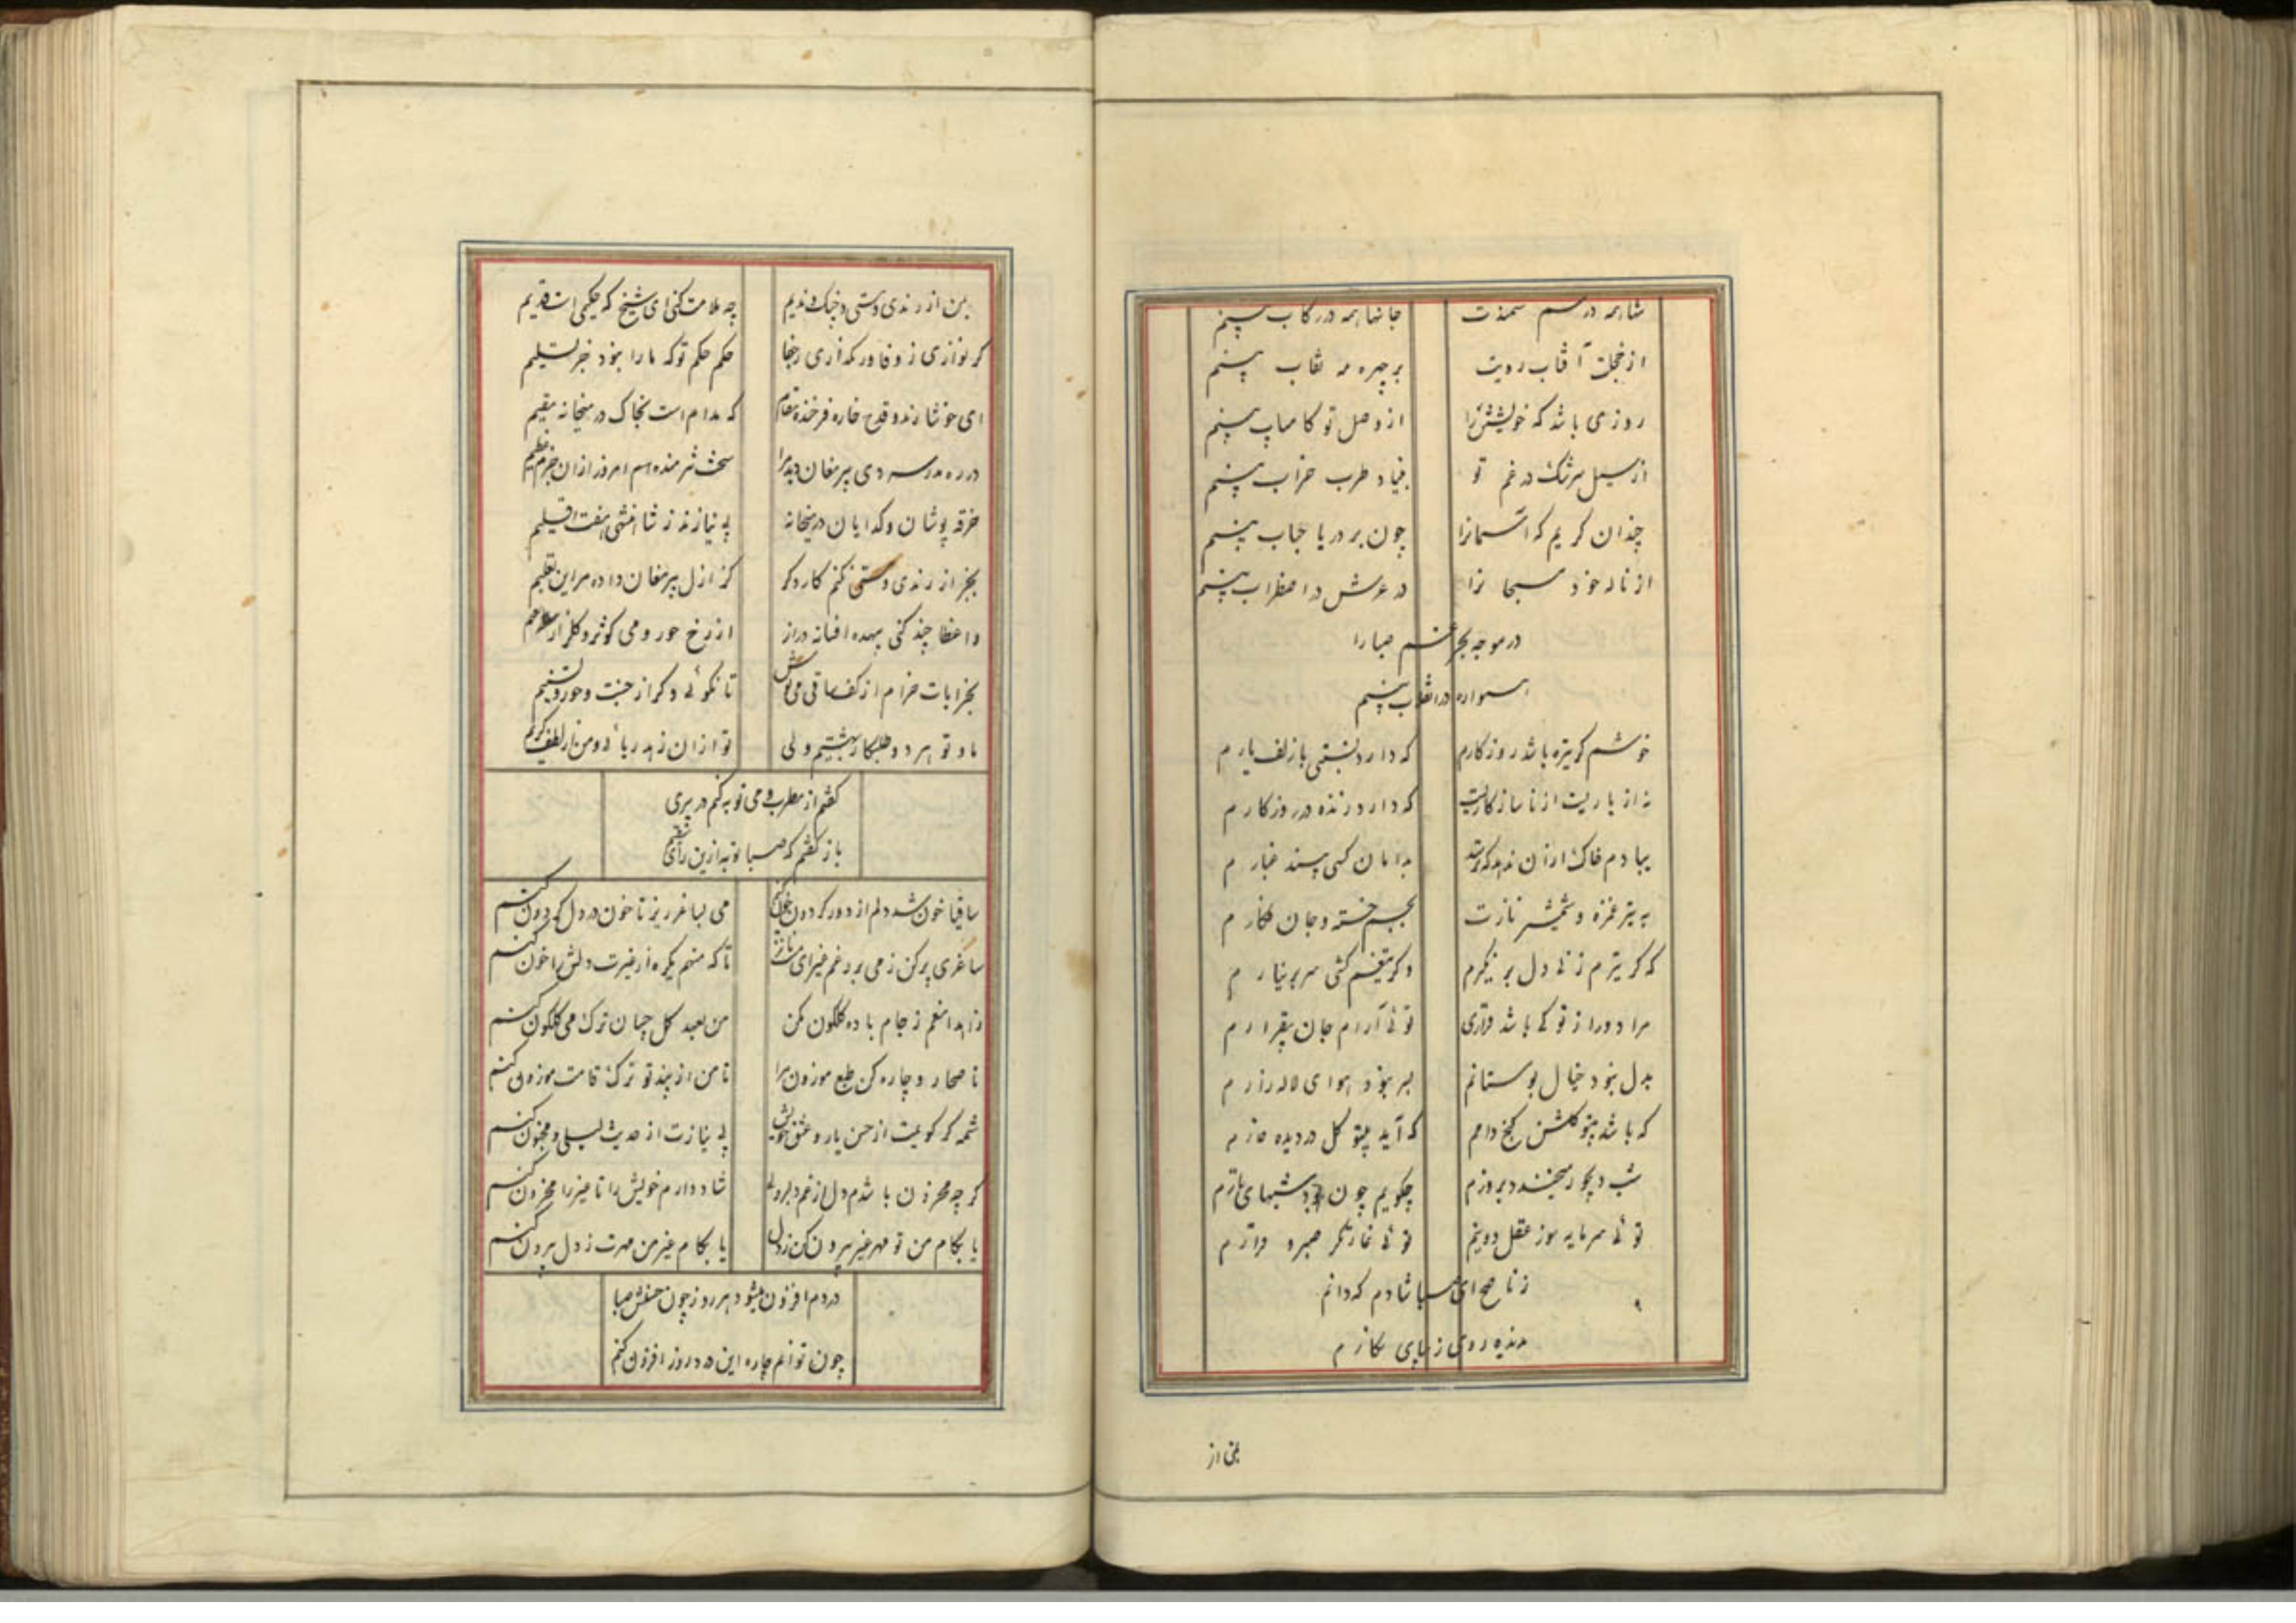 شاها همه در سم سمندت جانها همه در رکاب بینم
از خجلت آفتاب رویت بر چهره مه نقاب بینم
روزی باشد که خویشتن را از وصل تو کامیاب بینم
از سیل سرشک در غم تو بنیاد طرب خراب بینم
چندان گریم که آسمانرا چون بر دریا حباب بینم
از ناله خود مسیحا نرا در عرش در اضطراب بینم
در موجه بحر غم صبا را
همواره در انقلاب بینم
خوشم گر تیره باشد روزگارم که دارد نسبتی با زلف یارم
نه از یاریست از ناسازگاریست که دارد زنده در روزگارم
ببادم خاک ازان ندهد که ترسد بدامان کسی بیند غبارم
به تیر غمزه و شمشیر نازت بجسم خسته و جان فکارم
که گر تیرم زنی دل بر نگیرم وگر تیغم کشی سر بر نیارم
مرا دور از تو کی باشد قراری توئی آرام جان بیقرارم
بدل نبود خیال بوستانم بسر نبود هوای لاله زارم
که باشد بیتو گلشن کنج دامم که آید بیتو گل در دیده خارم
شب دیجور میخندد بروزم چگویم چون بود شبهای تارم
توئی سرمایه سوز عقل و دینم توئی غارتگر صبر و قرارم
ز ناصح ای صبا شادم که دانم
ندیده روی زیبای نگارم
بمن از
بمن از رندی و مستی و خبک و ندیم چه ملامت کنی ای شیخ که حکمی است قدیم
گر نوازی ز وفا ور کم آری ز جفا حکم حکم تو که ما را نبود جز تسلیم
ای خوشا رند و قدح خواره فرخنده مقام که مدام است بخاک در میخانه مقیم
در ره مدرسه دی پیر مغان دید مرا سخت شرمنده ام امروز ازان جرم عظیم
خرقه پوشان و گدایان در میخانه بی نیازند ز شاهنشهی هفت اقلیم
بجز از رندی و مستی نکنم کار دگر کز ازل پیر مغان داده مرا این تعلیم
واعظا چند کنی بیهده افسانه دراز از رخ حور و می کوثر و گلزار نعیم
بخرابات خرام از کف ساقی می نوش تا نگوئی دگر از جنت و حور و تسنیم
ما و تو هر دو طلبکار بهشتیم ولی تو ازان زهد ریائی و من از لطف کریم
گفتم از مطرب و می توبه کنم در پیری
باز گفتم که صبا توبه ازین رأی
ساقیا خون شد دلم از دور گردون چون کنم می بساغر ریز تا خون در دل گردون کنم
ساغری پر کن ز می بر رغم غیر ای تا که منهم یکره از غیرت دلش را خون کنم
زاهدا منعم ز جام باده گلگون مکن من بعهد گل چسان ترک می گلگون کنم
ناصحا رو چاره کن طبع موزون مرا تا من از پند تو ترک قامت موزون کنم
شمه گر گویمت از حسن یار و عشق خویش بی نیازت از حدیث لیلی و مجنون کنم
گر چه محزون باشدم دل از غم دلبر ولی شاد دارم خویش را تا غیر را محزون کنم
یا بکام من تو مهر غیر بیرون کن ز دل یا بکام غیر من مهرت ز دل بیرون کنم
دردم افزون میشود هر روز چون حسنش صبا
چون توانم چاره این درد روز افزون کنم